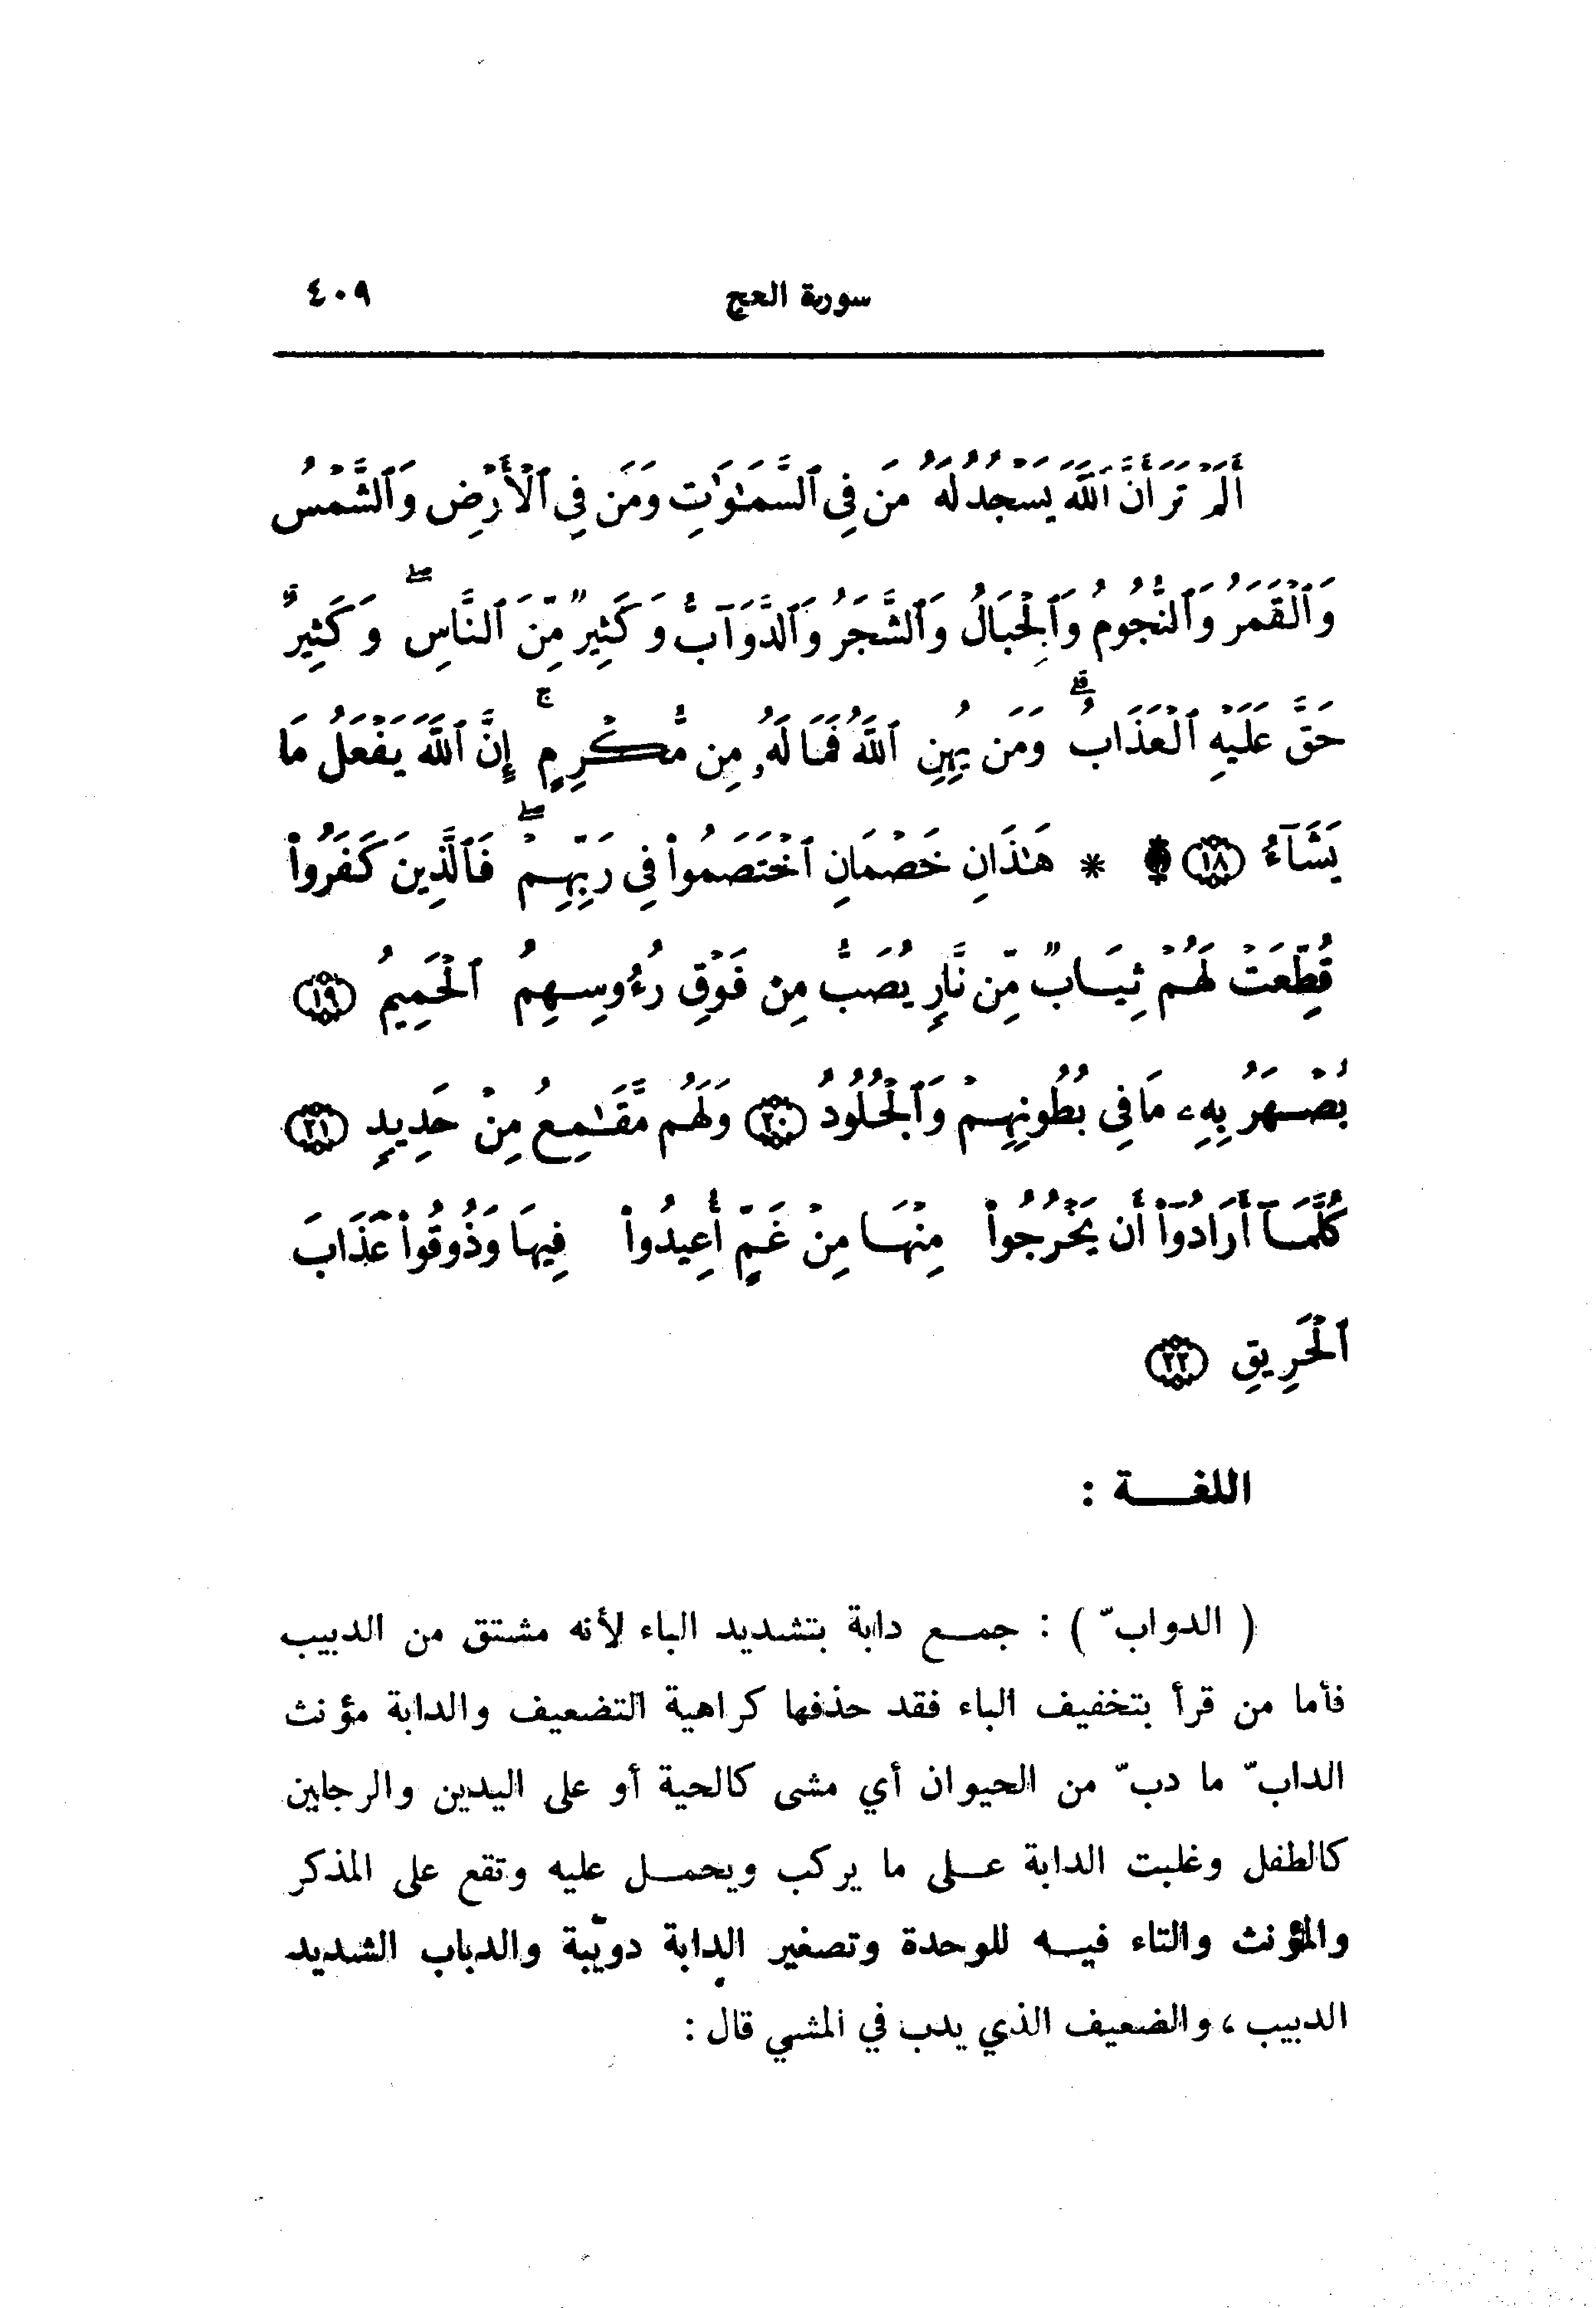 سورة الحج ٤٠٩
أَلَمْ تَرَ أَنَّ ٱللَّهَ يَسْجُدُ لَهُۥ مَن فِى ٱلسَّمَٰوَٰتِ وَمَن فِى ٱلْأَرْضِ وَٱلشَّمْسُ
وَٱلْقَمَرُ وَٱلنُّجُومُ وَٱلْجِبَالُ وَٱلشَّجَرُ وَٱلدَّوَآبُّ وَكَثِيرٌ مِّنَ ٱلنَّاسِ ۖ وَكَثِيرٌ
حَقَّ عَلَيْهِ ٱلْعَذَابُ ۗ وَمَن يُهِنِ ٱللَّهُ فَمَا لَهُۥ مِن مُّكْرِمٍ ۚ إِنَّ ٱللَّهَ يَفْعَلُ مَا
يَشَآءُ ﴿١٨﴾ * هَٰذَانِ خَصْمَانِ ٱخْتَصَمُوا۟ فِى رَبِّهِمْ ۖ فَٱلَّذِينَ كَفَرُوا۟
قُطِّعَتْ لَهُمْ ثِيَابٌ مِّن نَّارٍ يُصَبُّ مِن فَوْقِ رُءُوسِهِمُ ٱلْحَمِيمُ ﴿١٩﴾
يُصْهَرُ بِهِۦ مَا فِى بُطُونِهِمْ وَٱلْجُلُودُ ﴿٢٠﴾ وَلَهُم مَّقَٰمِعُ مِنْ حَدِيدٍ ﴿٢١﴾
كُلَّمَآ أَرَادُوٓا۟ أَن يَخْرُجُوا۟ مِنْهَا مِنْ غَمٍّ أُعِيدُوا۟ فِيهَا وَذُوقُوا۟ عَذَابَ
ٱلْحَرِيقِ ﴿٢٢﴾
اللغـــة :
( الدوابّ ) : جمـع دابة بتشديد الباء لأنه مشتق من الدبيب
فأما من قرأ بتخفيف الباء فقد حذفها كراهية التضعيف والدابة مؤنث
الدابّ ما دبّ من الحيوان أي مشى كالحية أو على اليدين والرجلين
كالطفل وغلبت الدابة عـلى ما يركب ويحمـل عليه وتقع على المذكر
والمؤنث والتاء فيـه للوحدة وتصغير الدابة دويبّة والدباب الشديد
الدبيب ، والضعيف الذي يدب في المشي قال :